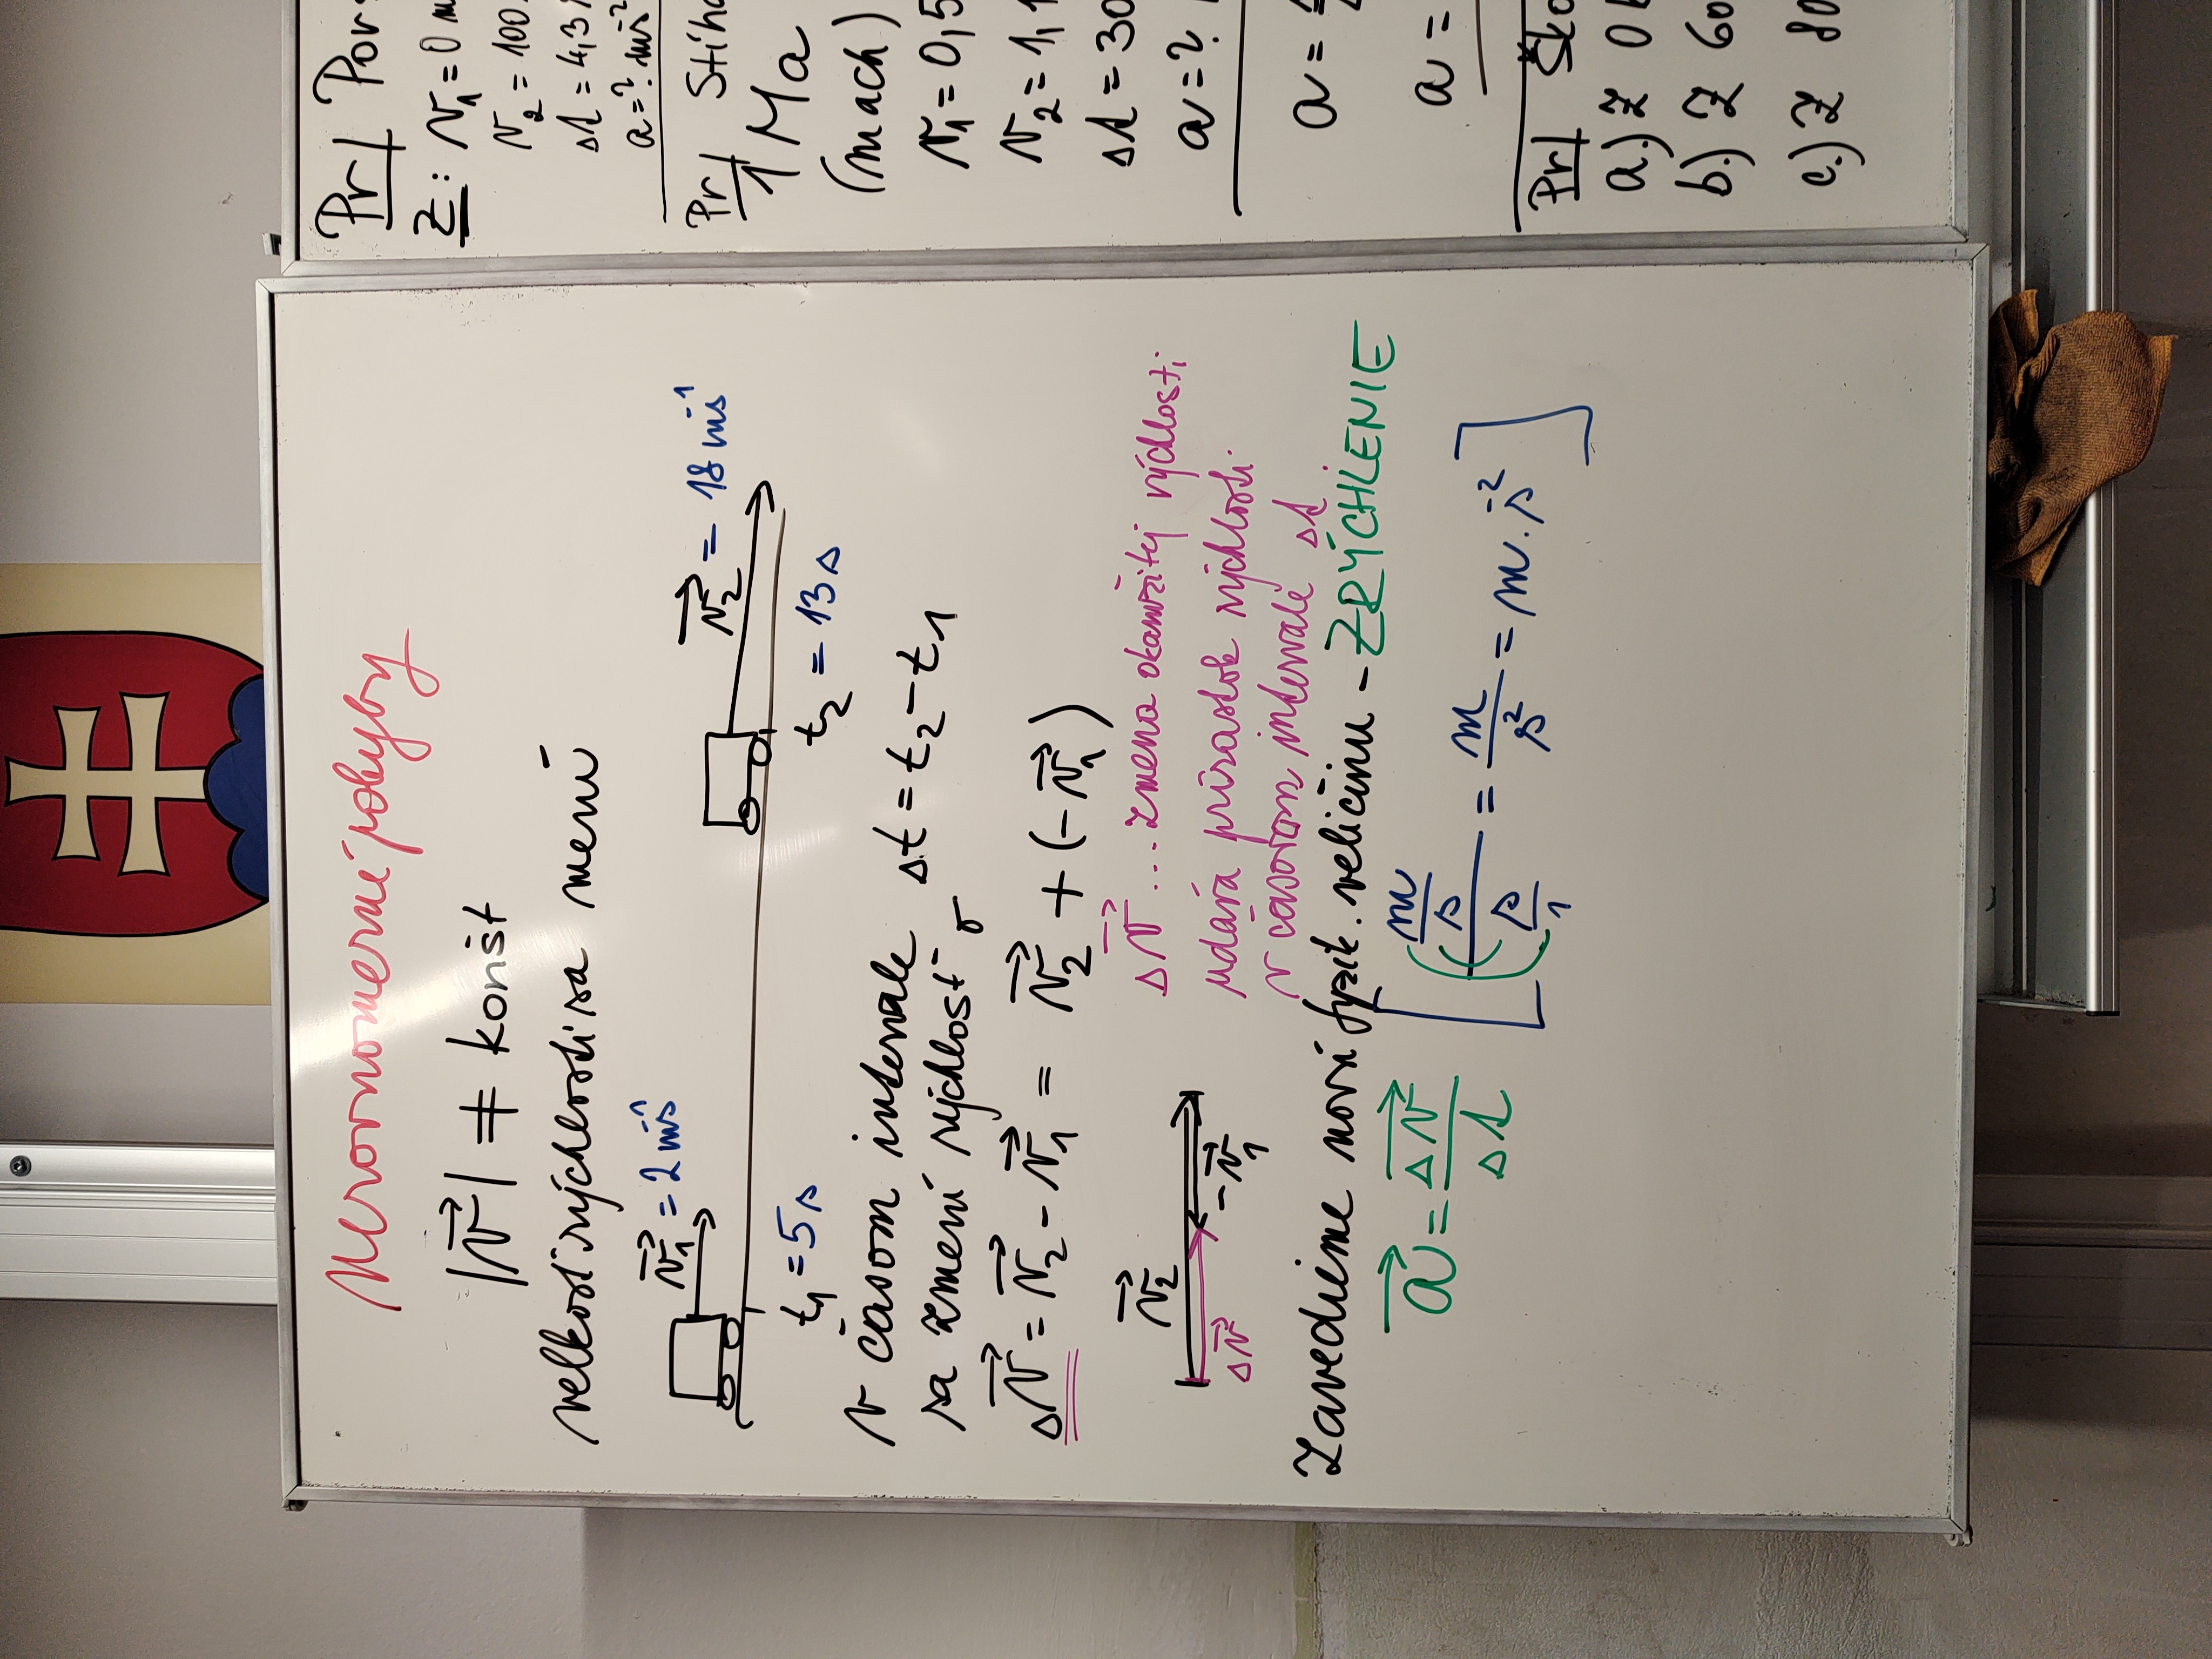 Nerovnomerné pohyby
|v⃗| ≠ konšt
velkosť rýchlosti sa mení
v⃗₁ = 2 ms⁻¹
v⃗₂ = 18 ms⁻¹
t₁ = 5 s
t₂ = 13 s
v časom intervale Δt = t₂ - t₁
sa zmení rýchlosť o
Δv⃗ = v⃗₂ - v⃗₁ = v⃗₂ + (-v⃗₁)
v⃗₂
Δv⃗
-v⃗₁
Δv⃗ ... zmena okamžitej rýchlosti,
udáva prírastok rýchlosti
v časovom intervale Δt
Zavedieme novú fyzik. veličinu - ZRÝCHLENIE
a⃗ = Δv⃗/Δt [(m/s)/(s/1) = m/s² = m.s⁻²]
Pr
Z: v₁ = 0 m
v₂ = 100
Δt = 4,3
a = ? ms⁻²
Pr
1 Ma
(mach)
v₁ = 0,5
v₂ = 1,1
Δt = 30
a = ?
a =
a =
Pr
a.) z 0
b.) z 60
c.) z 80